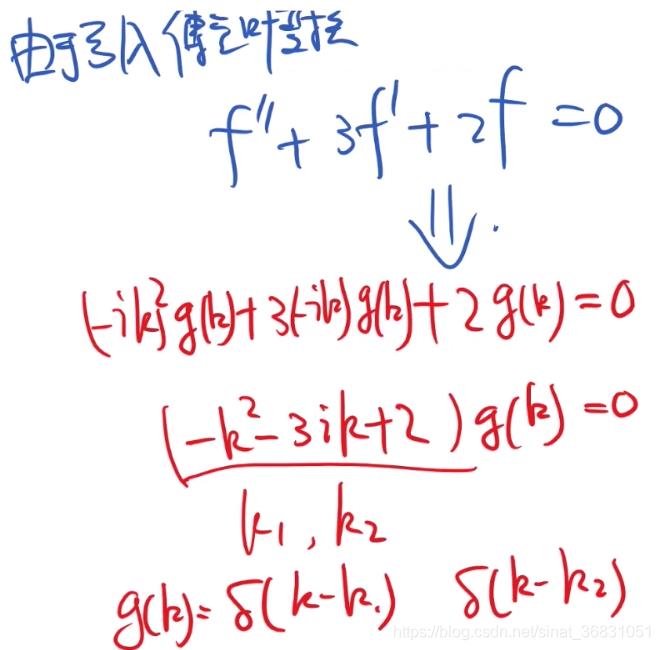 由于引入傅立叶变换
f″ + 3f′ + 2f = 0
⇓.
(-ik)²g(k)+3(-ik)g(k)+2g(k)=0
(-k²-3ik+2)g(k)=0
k₁, k₂
g(k)= δ(k-k₁) δ(k-k₂)
https://blog.csdn.net/sinat_36831051